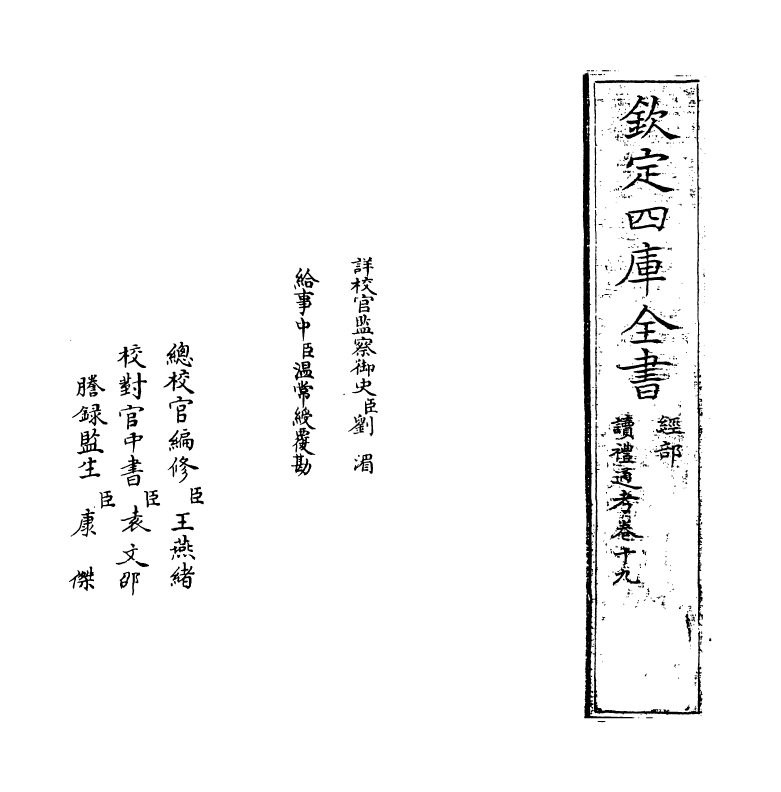 欽定四庫全書
經部
讀禮通考卷十九
詳校官監察御史臣劉湄
給事中臣温常綬覆勘
總校官編修臣王燕緒
校對官中書臣袁文邵
謄録監生臣康傑